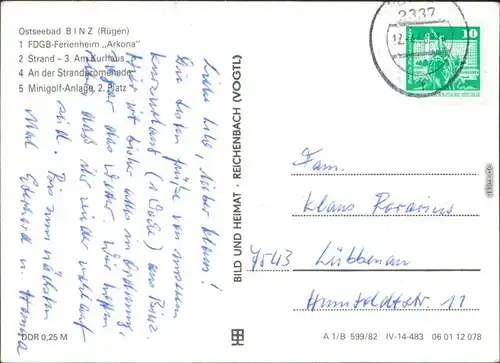 Ostseebad BINZ (Rügen)
1 FDGB-Ferienheim „Arkona"
2 Strand – 3 Am Kurhaus
4 An der Strandpromenade
5 Minigolf-Anlage, 2. Platz
Liebe Lilo, lieber Klaus!
Die besten Grüße von unserem
Kurzurlaub (1 Woche) aus Binz.
Hier ist bisher alles in Ordnung,
sogar das Wetter. Wir hoffen
daß ihr wieder wohlauf
seid. Bis zum nächsten
Mal Eberhard u. Hanna
DDR 0,25 M
BILD UND HEIMAT · REICHENBACH (VOGTL)
2337
10
Fam.
Klaus Rorarius
7543 Lübbenau
Humboldtstr. 11
A 1/B 599/82 IV-14-483 06 01 12 078